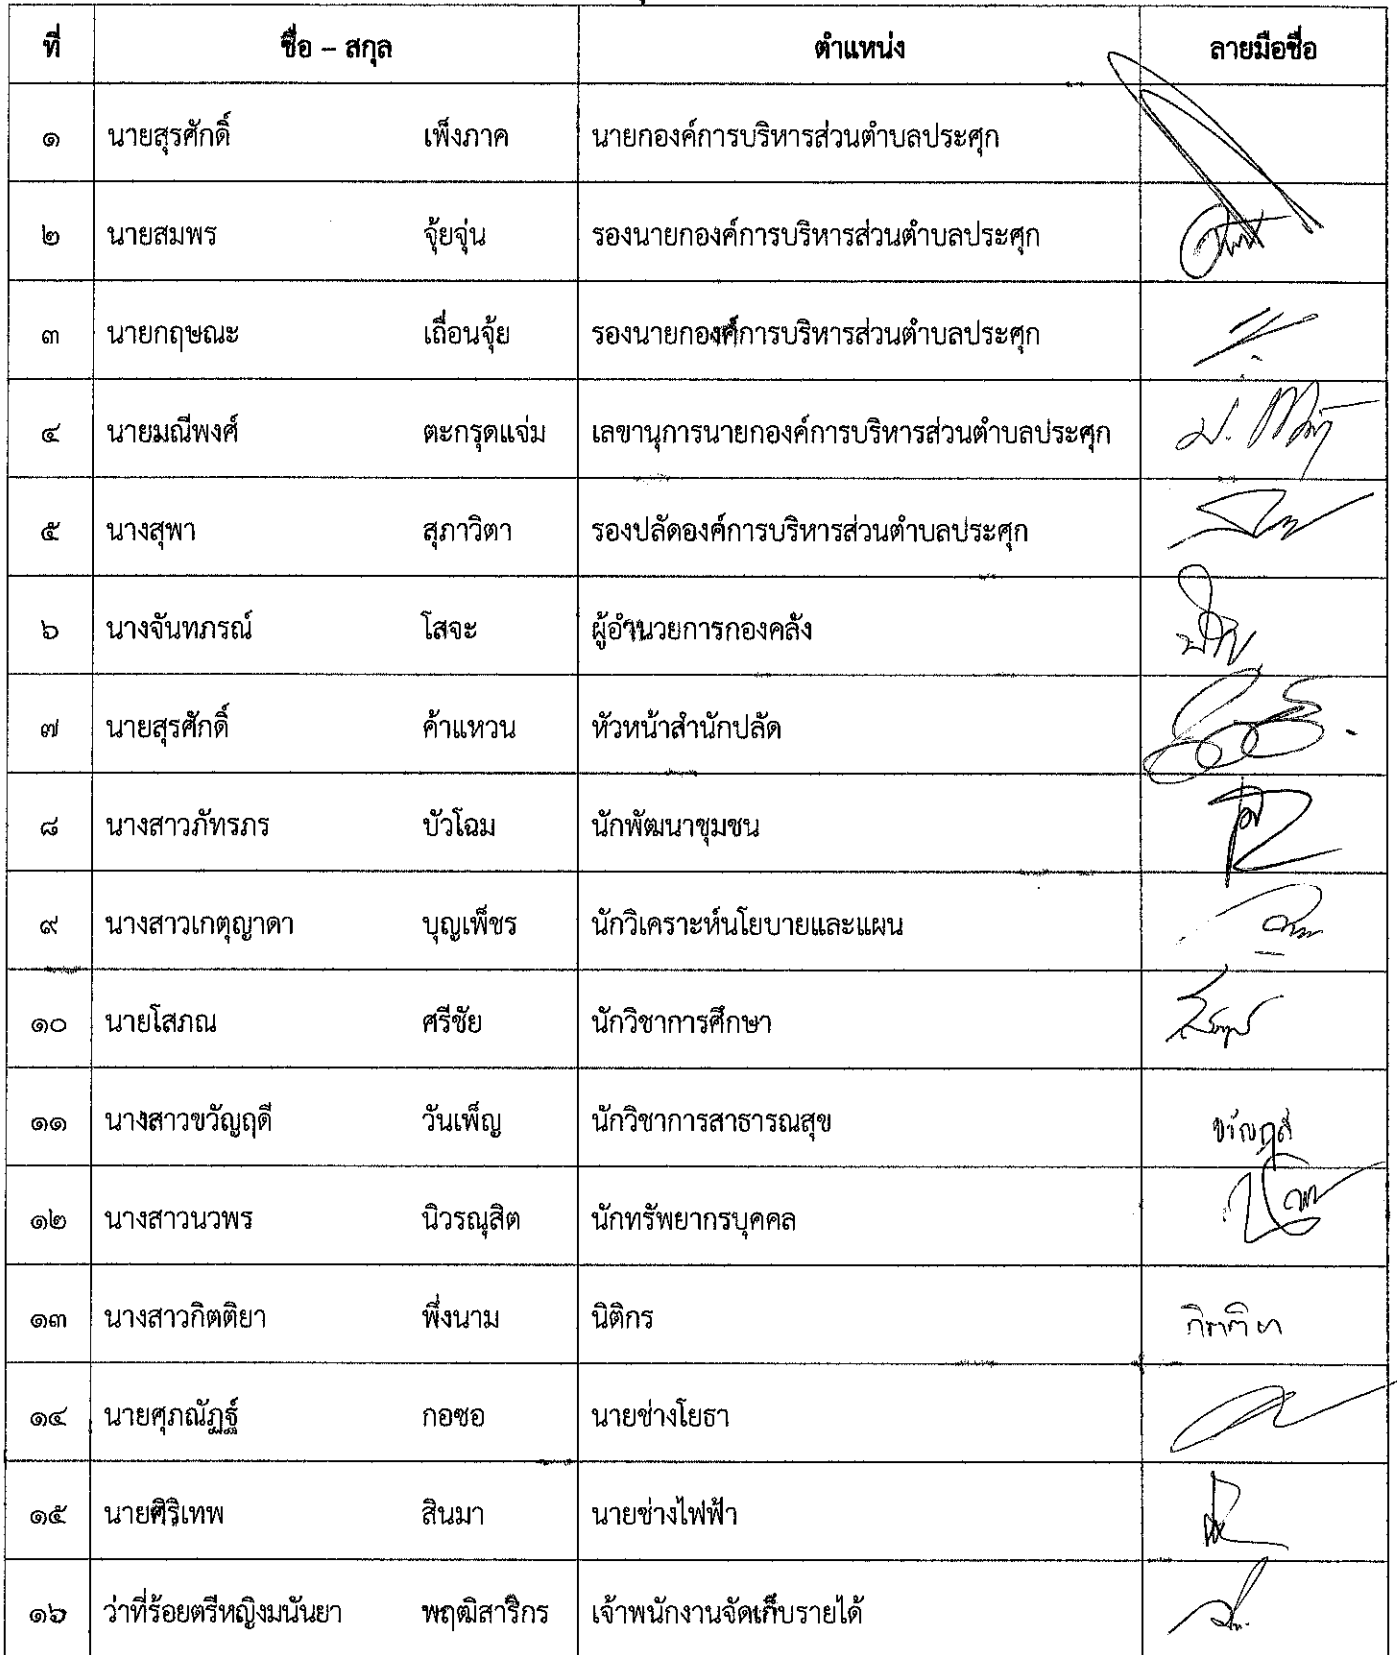 ที่ ชื่อ – สกุล ตำแหน่ง ลายมือชื่อ
๑ นายสุรศักดิ์ เพ็งภาค นายกองค์การบริหารส่วนตำบลประศุก
๒ นายสมพร จุ้ยจุ่น รองนายกองค์การบริหารส่วนตำบลประศุก
๓ นายกฤษณะ เถื่อนจุ้ย รองนายกองค์การบริหารส่วนตำบลประศุก
๔ นายมณีพงศ์ ตะกรุดแจ่ม เลขานุการนายกองค์การบริหารส่วนตำบลประศุก
๕ นางสุพา สุภาวิตา รองปลัดองค์การบริหารส่วนตำบลประศุก
๖ นางจันทภรณ์ โสจะ ผู้อำนวยการกองคลัง
๗ นายสุรศักดิ์ ค้าแหวน หัวหน้าสำนักปลัด
๘ นางสาวภัทรภร บัวโฉม นักพัฒนาชุมชน
๙ นางสาวเกตุญาดา บุญเพ็ชร นักวิเคราะห์นโยบายและแผน
๑๐ นายโสภณ ศรีชัย นักวิชาการศึกษา
๑๑ นางสาวขวัญฤดี วันเพ็ญ นักวิชาการสาธารณสุข ขวัญฤดี
๑๒ นางสาวนวพร นิวรณุสิต นักทรัพยากรบุคคล
๑๓ นางสาวกิตติยา พึ่งนาม นิติกร กิตติยา
๑๔ นายศุภณัฏฐ์ กอซอ นายช่างโยธา
๑๕ นายศิริเทพ สินมา นายช่างไฟฟ้า
๑๖ ว่าที่ร้อยตรีหญิงมนันยา พฤฒิสาริกร เจ้าพนักงานจัดเก็บรายได้